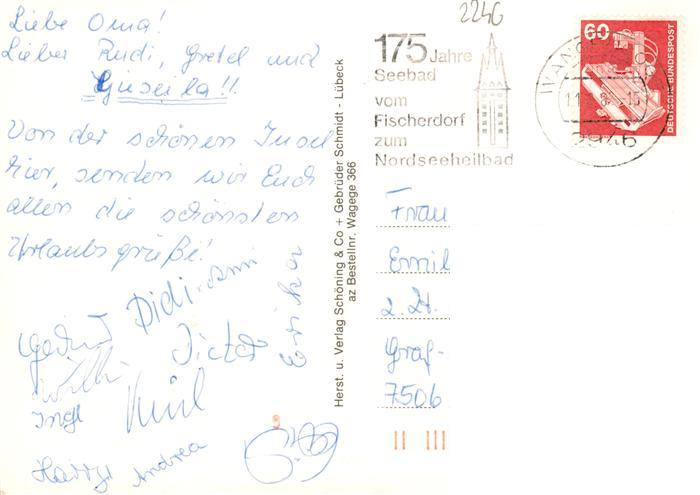 Liebe Oma!
Lieber Rudi, Gretel und
Gisela!!
Von der schönen Insel
hier, senden wir Euch
allen die schönsten
Urlaubsgrüße!
Didi
Dieter
Willi
Ingl
Harry
Andrea
Herst. u. Verlag Schöning & Co + Gebrüder Schmidt - Lübeck
az Bestellnr. Wagege 366
2246
175 Jahre
Seebad
vom
Fischerdorf
zum
Nordseeheilbad
60
DEUTSCHE BUNDESPOST
2946
Frau
Emil
z. Zt.
Graf-
7506